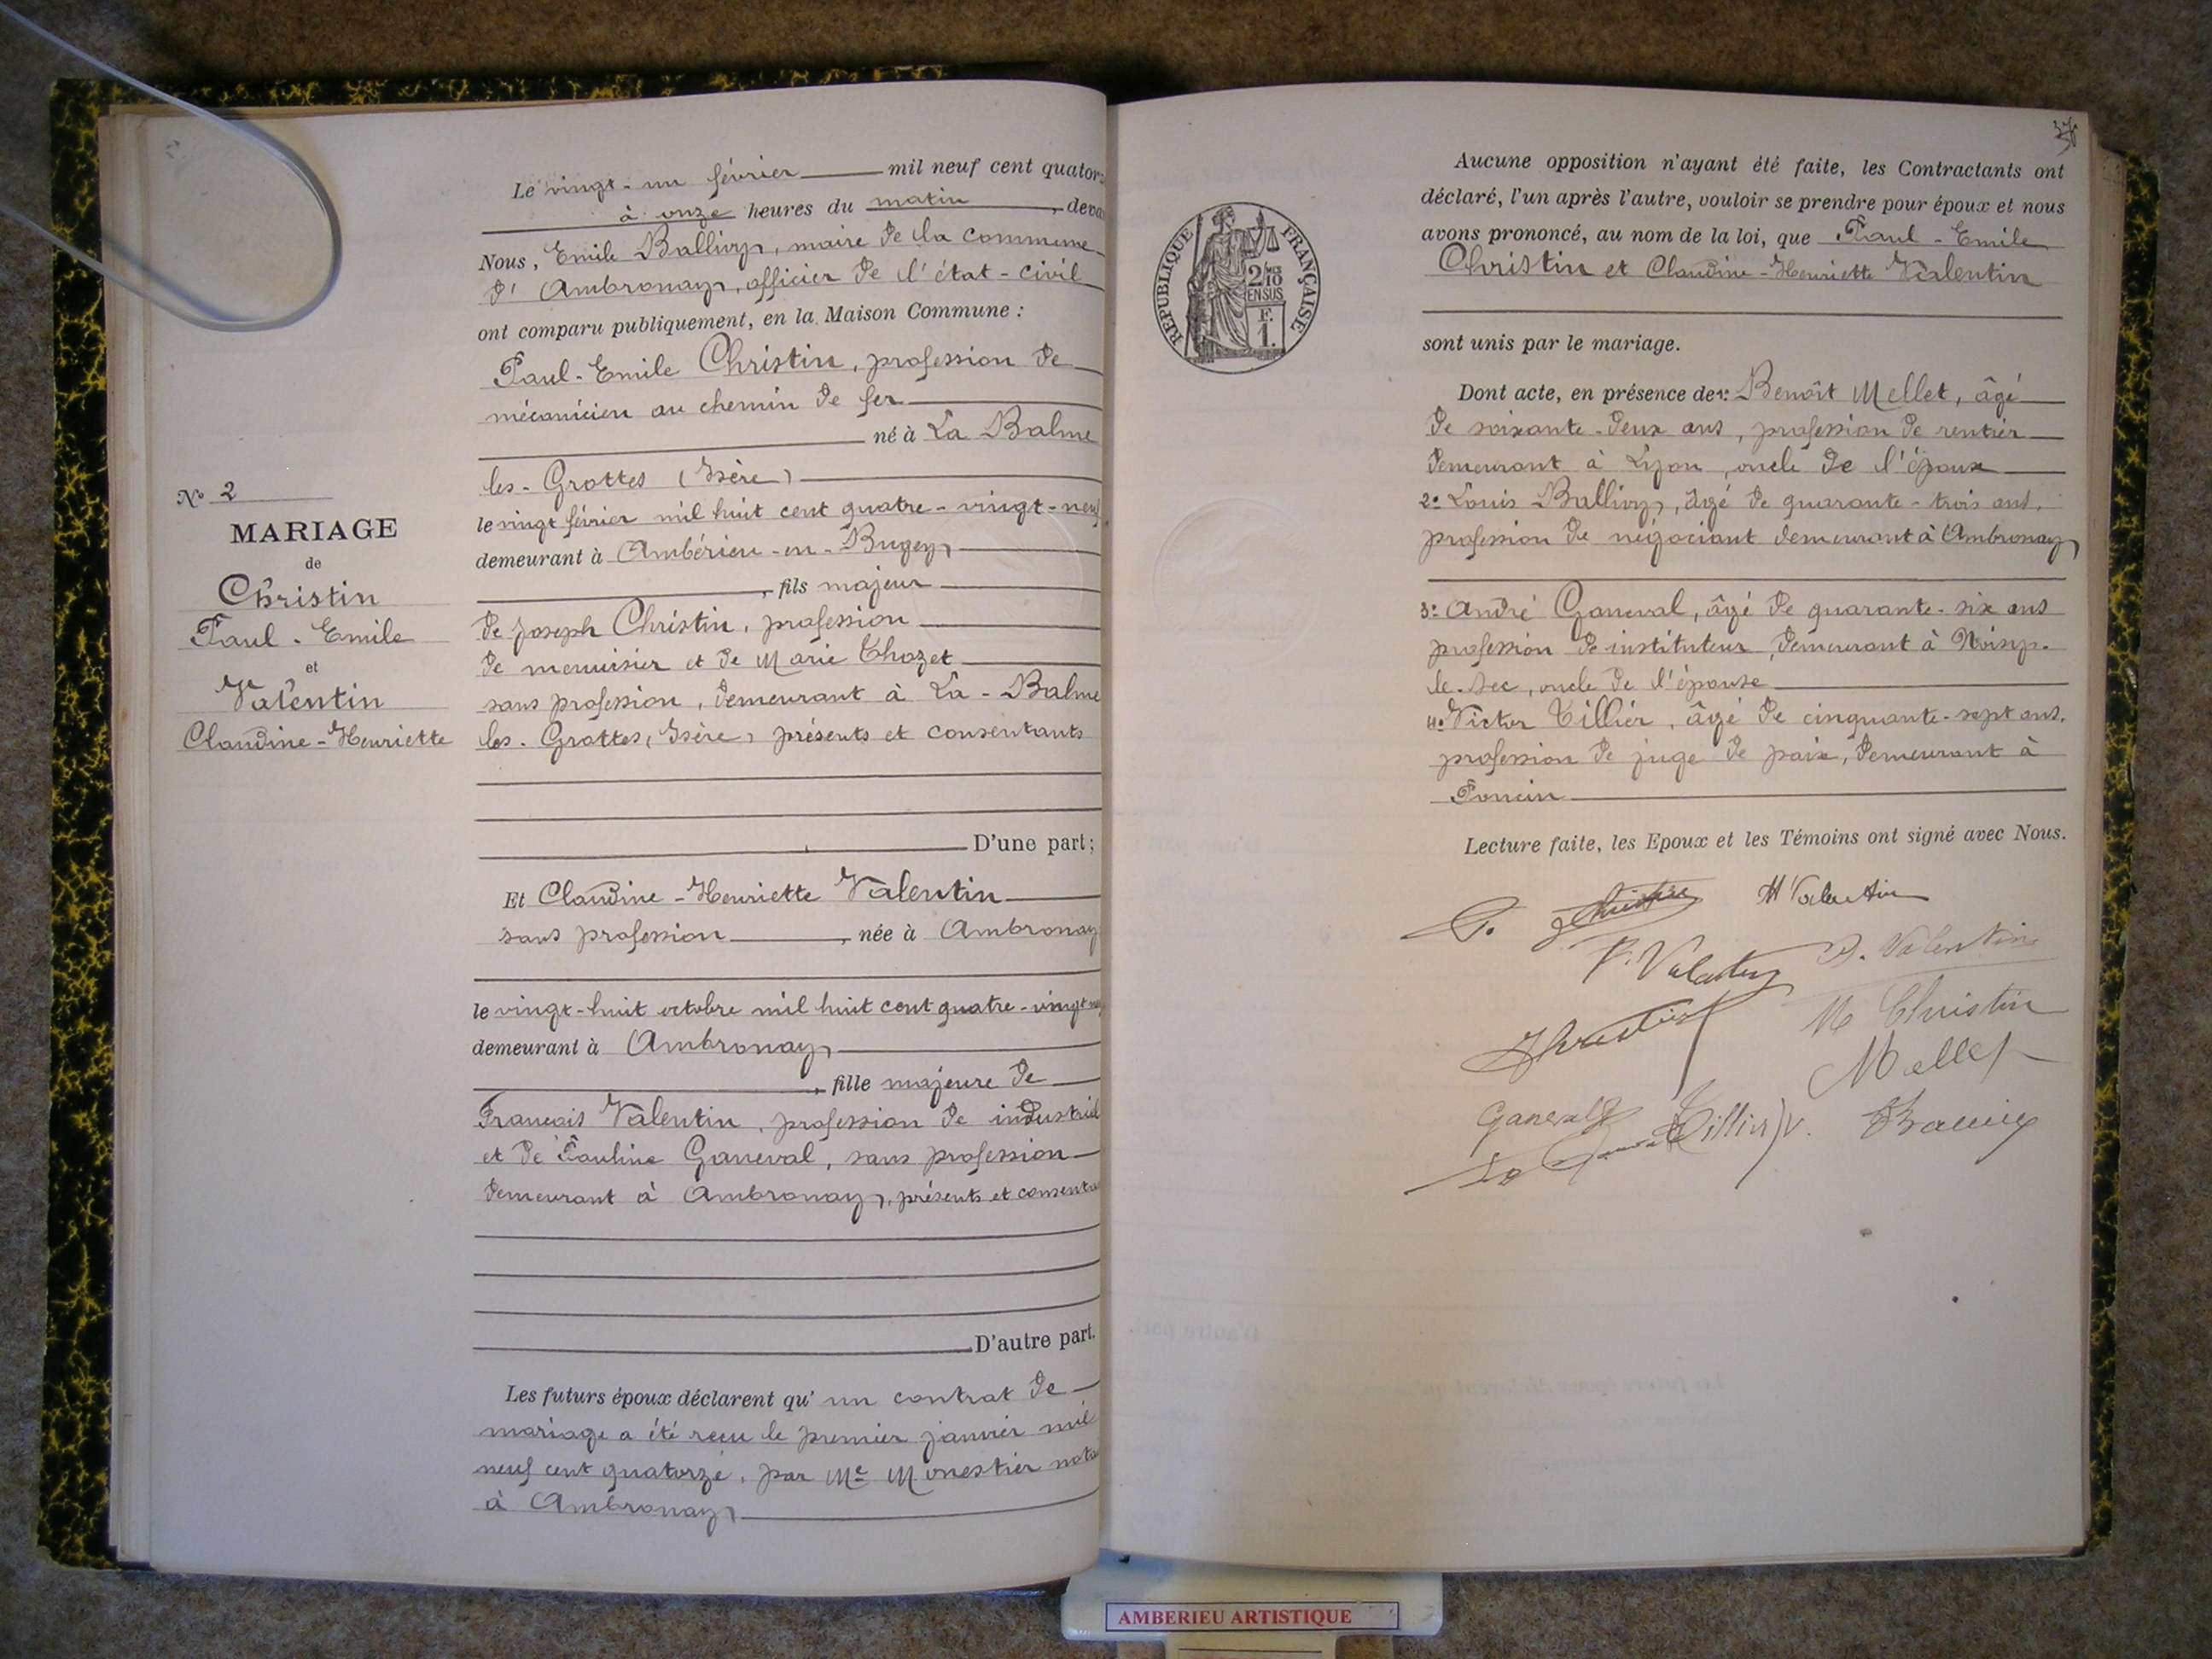 N° 2
MARIAGE
de
Christin
Paul - Emile
et
Valentin
Claudine - Henriette
Le vingt - un février mil neuf cent quator
à onze heures du matin, deva
Nous, Emile Ballivy, maire de la commune
d' Ambronay, officier de l'état - civil
ont comparu publiquement, en la Maison Commune :
Paul - Emile Christin, profession de
mécanicien au chemin de fer
né à La Balme
les - Grottes (Isère)
le vingt février mil huit cent quatre - vingt - neuf
demeurant à Ambérieu - en - Bugey
, fils majeur
de Joseph Christin, profession
de menuisier et de Marie Chozet
sans profession, demeurant à La - Balme
les - Grottes, (Isère) présents et consentants
D'une part ;
Et Claudine - Henriette Valentin
sans profession, née à Ambronay
le vingt - huit octobre mil huit cent quatre - vingt
demeurant à Ambronay
, fille majeure de
François Valentin, profession de industriel
et de Pauline Ganeval, sans profession
demeurant à Ambronay, présents et consenta
D'autre part.
Les futurs époux déclarent qu' un contrat de
mariage a été reçu le premier janvier mil
neuf cent quatorze, par Me Monestier nota
à Ambronay
37
RÉPUBLIQUE FRANÇAISE
2/10
EN SUS
F.
1.
Aucune opposition n'ayant été faite, les Contractants ont
déclaré, l'un après l'autre, vouloir se prendre pour époux et nous
avons prononcé, au nom de la loi, que Paul - Emile
Christin et Claudine - Henriette Valentin
sont unis par le mariage.
Dont acte, en présence de 1: Benoît Mellet, âgé
de soixante - deux ans, profession de rentier
demeurant à Lyon, oncle de l'époux
2: Louis Ballivy, âgé de quarante - trois ans,
profession de négociant demeurant à Ambronay
3: André Ganeval, âgé de quarante - six ans
profession de instituteur, demeurant à Noisy -
le - Sec, oncle de l'épouse
4: Victor Tillier, âgé de cinquante - sept ans,
profession de juge de paix, demeurant à
Poncin
Lecture faite, les Epoux et les Témoins ont signé avec Nous.
P. Christin H Valentin
P. Valentin Valentin
M Christin
Mellet
Ganeval Tillier V.
AMBERIEU ARTISTIQUE